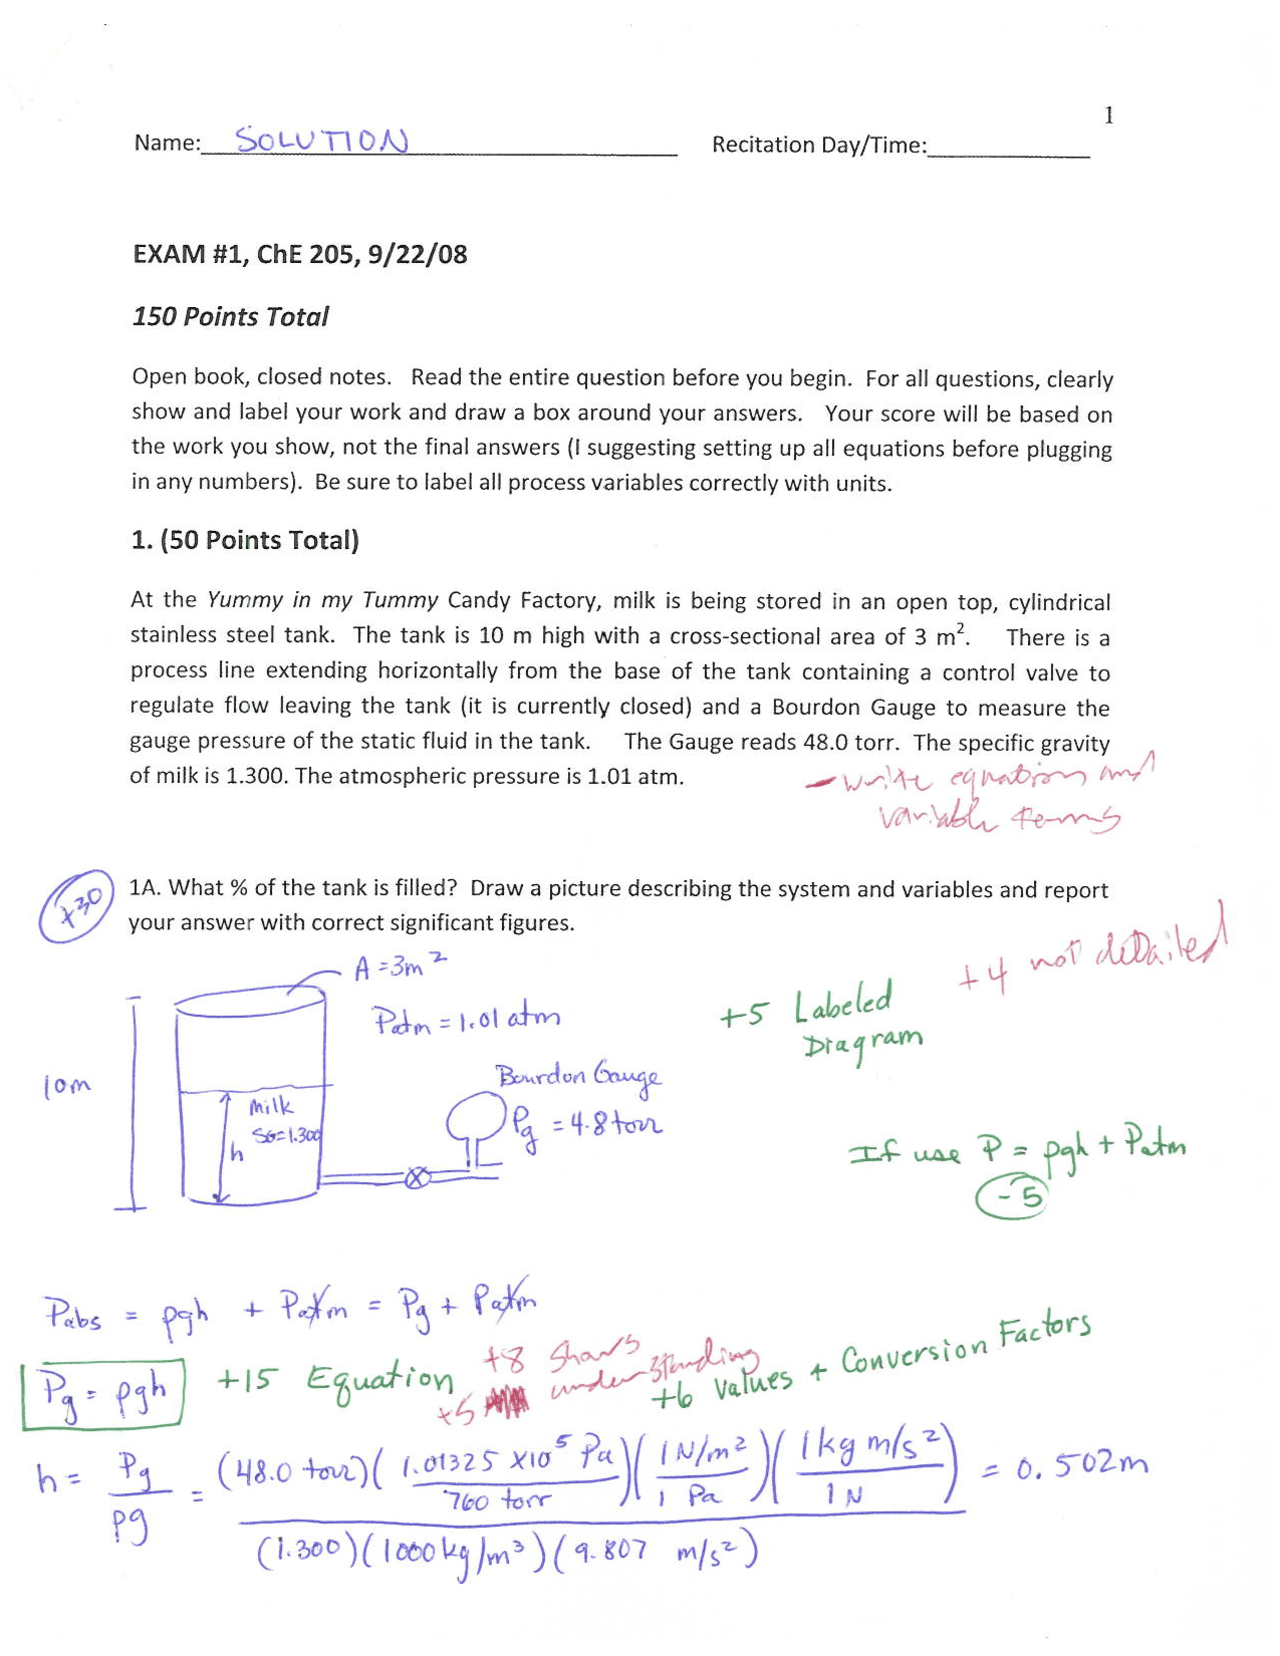 1
Name: SOLUTION Recitation Day/Time:
EXAM #1, ChE 205, 9/22/08
150 Points Total
Open book, closed notes. Read the entire question before you begin. For all questions, clearly
show and label your work and draw a box around your answers. Your score will be based on
the work you show, not the final answers (I suggesting setting up all equations before plugging
in any numbers). Be sure to label all process variables correctly with units.
1. (50 Points Total)
At the Yummy in my Tummy Candy Factory, milk is being stored in an open top, cylindrical
stainless steel tank. The tank is 10 m high with a cross-sectional area of 3 m². There is a
process line extending horizontally from the base of the tank containing a control valve to
regulate flow leaving the tank (it is currently closed) and a Bourdon Gauge to measure the
gauge pressure of the static fluid in the tank. The Gauge reads 48.0 torr. The specific gravity
of milk is 1.300. The atmospheric pressure is 1.01 atm.
- write equation and
variable terms
+30
1A. What % of the tank is filled? Draw a picture describing the system and variables and report
your answer with correct significant figures.
A = 3m²
+4 not detailed
+5 Labeled
Diagram
Patm = 1.01 atm
10m
Bourdon Gauge
Pg = 4.8 torr
Milk
SG=1.300
h
If use P = ρgh + Patm
-5
Pabs = ρgh + Patm = Pg + Patm
Pg = ρgh
+15 Equation
+8 Shows
understanding
+5
+6 Values + Conversion Factors
h = Pg/ρg = (48.0 torr)(1.01325 x10⁵ Pa/760 torr)(1 N/m²/1 Pa)(1 kg m/s²/1 N) = 0.502m
(1.300)(1000 kg/m³)(9.807 m/s²)